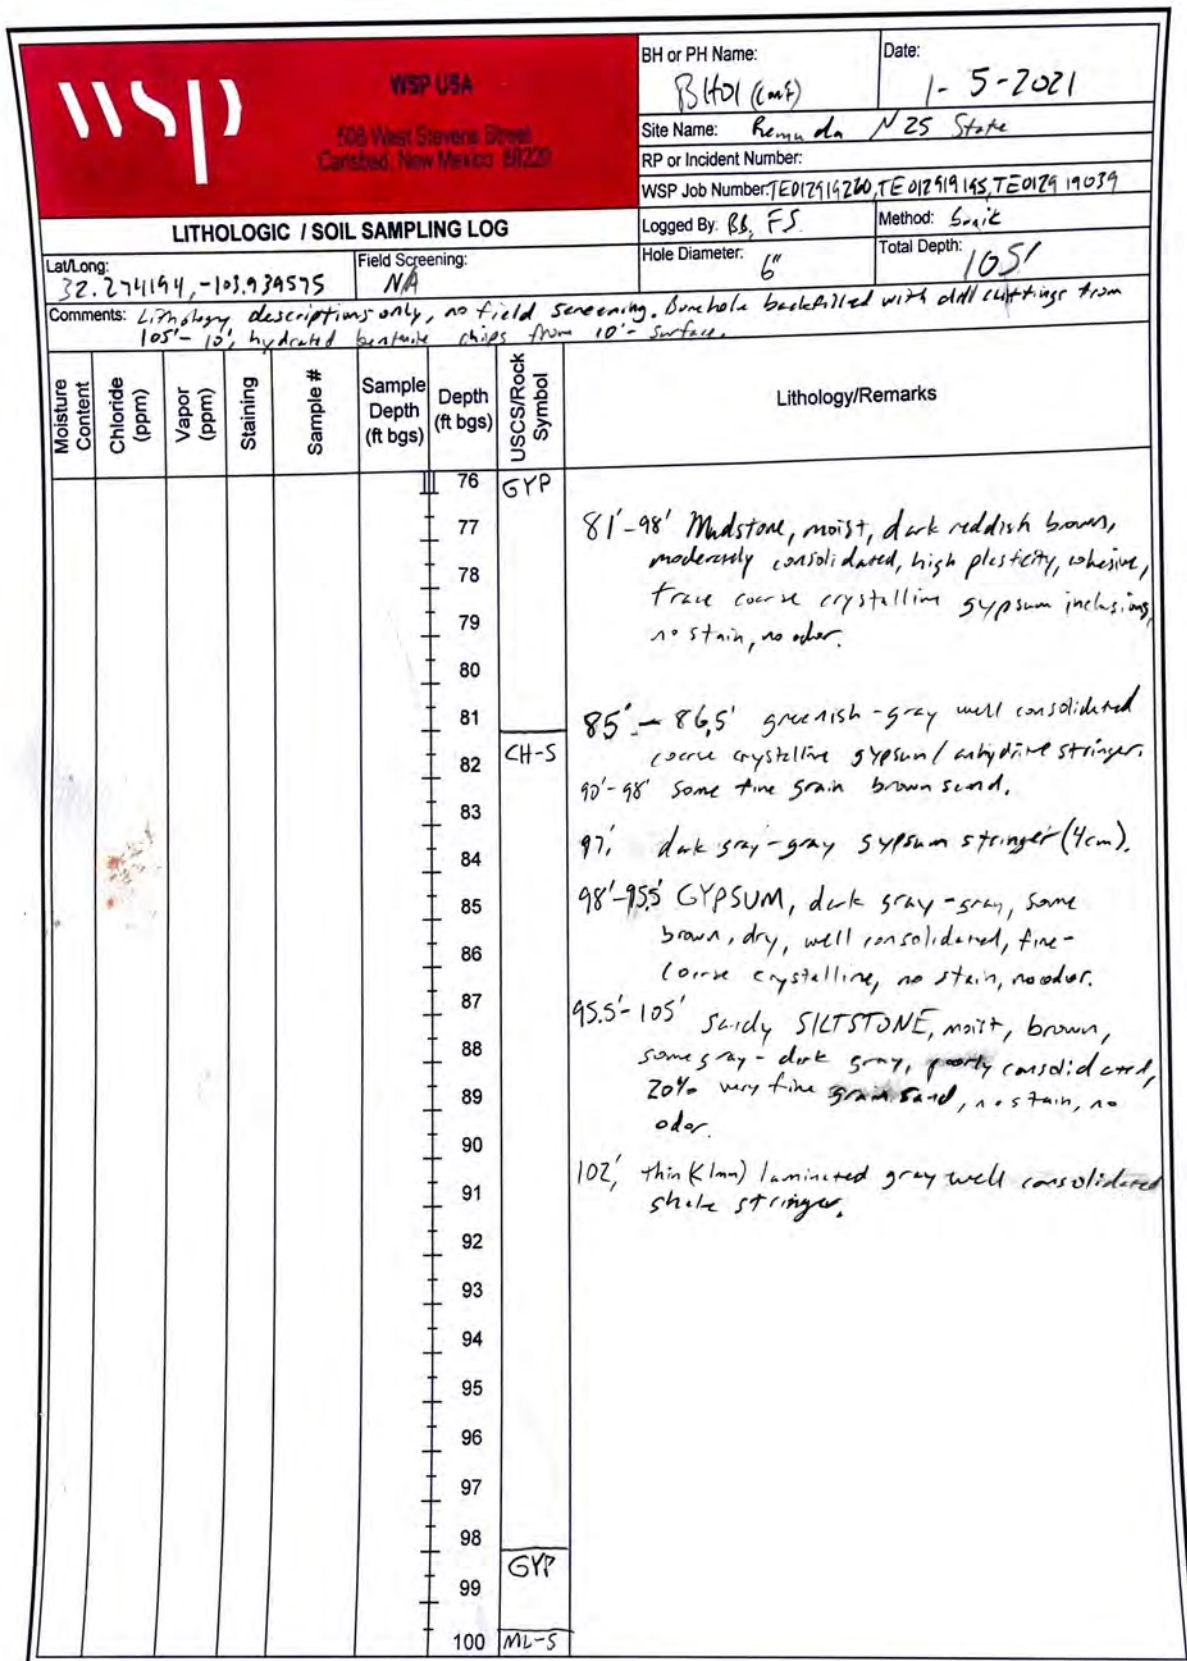 wsp
WSP USA
508 West Stevens Street
Carlsbad, New Mexico 88220
BH or PH Name:
BH01 (con't)
Date:
1-5-2021
Site Name: Remuda N 25 State
RP or Incident Number:
WSP Job Number: TE012919260, TE012919195, TE012919039
LITHOLOGIC / SOIL SAMPLING LOG
Logged By: BB, FS
Method: Sonic
Lat/Long:
32.274194, -103.939575
Field Screening:
NA
Hole Diameter: 6"
Total Depth: 105'
Comments: Lithology descriptions only, no field screening. Borehole backfilled with drill cuttings from
105'-10', hydrated bentonite chips from 10'- surface.
Moisture Content
Chloride (ppm)
Vapor (ppm)
Staining
Sample #
Sample Depth (ft bgs)
Depth (ft bgs)
USCS/Rock Symbol
Lithology/Remarks
76 GYP
77
78
79
80
81
82 CH-S
83
84
85
86
87
88
89
90
91
92
93
94
95
96
97
98
99 GYP
100 ML-S
81'-98' Mudstone, moist, dark reddish brown,
moderately consolidated, high plasticity, cohesive,
trace coarse crystalline gypsum inclusions,
no stain, no odor.
85'-86.5' greenish-gray well consolidated
coarse crystalline gypsum/anhydrite stringer.
90'-98' some fine grain brown sand.
97', dark gray-gray gypsum stringer (4cm).
98'-95.5' GYPSUM, dark gray-gray, some
brown, dry, well consolidated, fine-
coarse crystalline, no stain, no odor.
95.5'-105' sandy SILTSTONE, moist, brown,
some gray-dark gray, poorly consolidated,
20% very fine grain sand, no stain, no
odor.
102', thin (<1mm) laminated gray well consolidated
shale stringer.